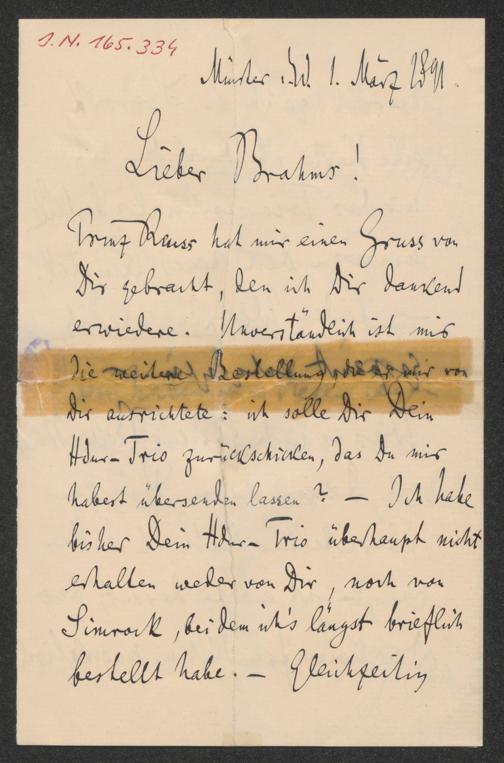 J.N. 165.334
Münster i/W. 1. März 1891.
Lieber Brahms!
Prinz Reuss hat mir einen Gruss von
Dir gebracht, den ich Dir dankend
erwiedere. Unverständlich ist mir
die weitere Bestellung, die er mir von
Dir ausrichtete: ich solle Dir Dein
Hdur-Trio zurückschicken, das Du mir
habest übersenden lassen? – Ich habe
bisher Dein Hdur-Trio überhaupt nicht
erhalten weder von Dir, noch von
Simrock, bei dem ich's längst brieflich
bestellt habe. – Gleichzeitig